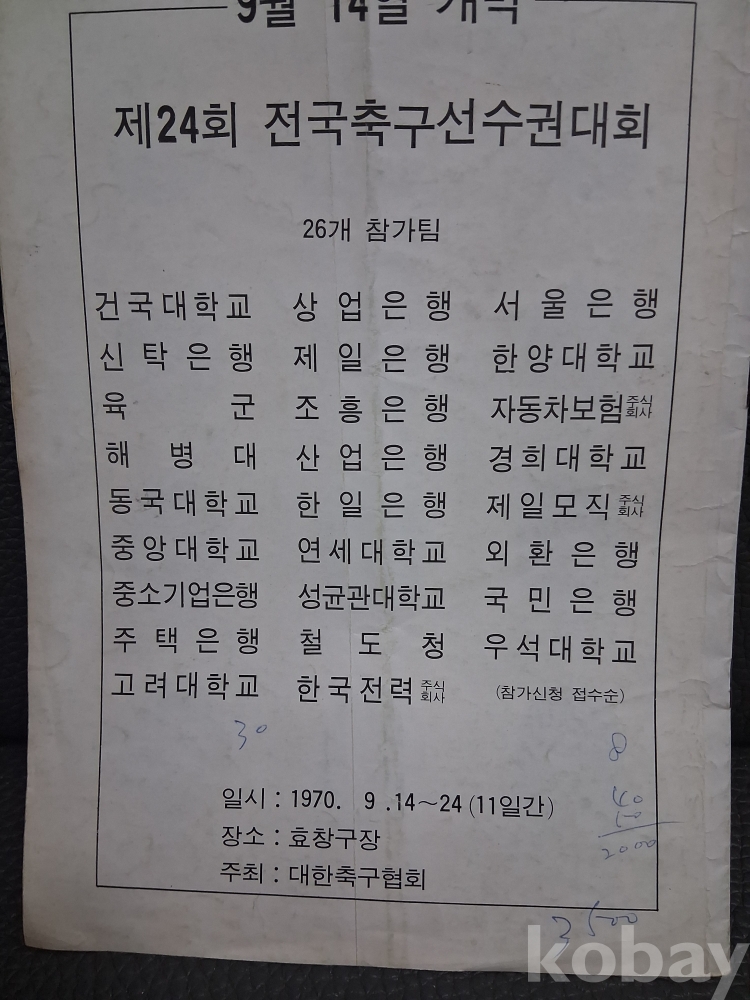 9월 14일 개막
제24회 전국축구선수권대회
26개 참가팀
건국대학교 상업은행 서울은행
신탁은행 제일은행 한양대학교
육군 조흥은행 자동차보험주식회사
해병대 산업은행 경희대학교
동국대학교 한일은행 제일모직주식회사
중앙대학교 연세대학교 외환은행
중소기업은행 성균관대학교 국민은행
주택은행 철도청 우석대학교
고려대학교 한국전력주식회사 (참가신청 접수순)
30 8
일시 : 1970. 9 .14~24 (11일간)
40
장소 : 효창구장
2000
주최 : 대한축구협회
3500
kobay